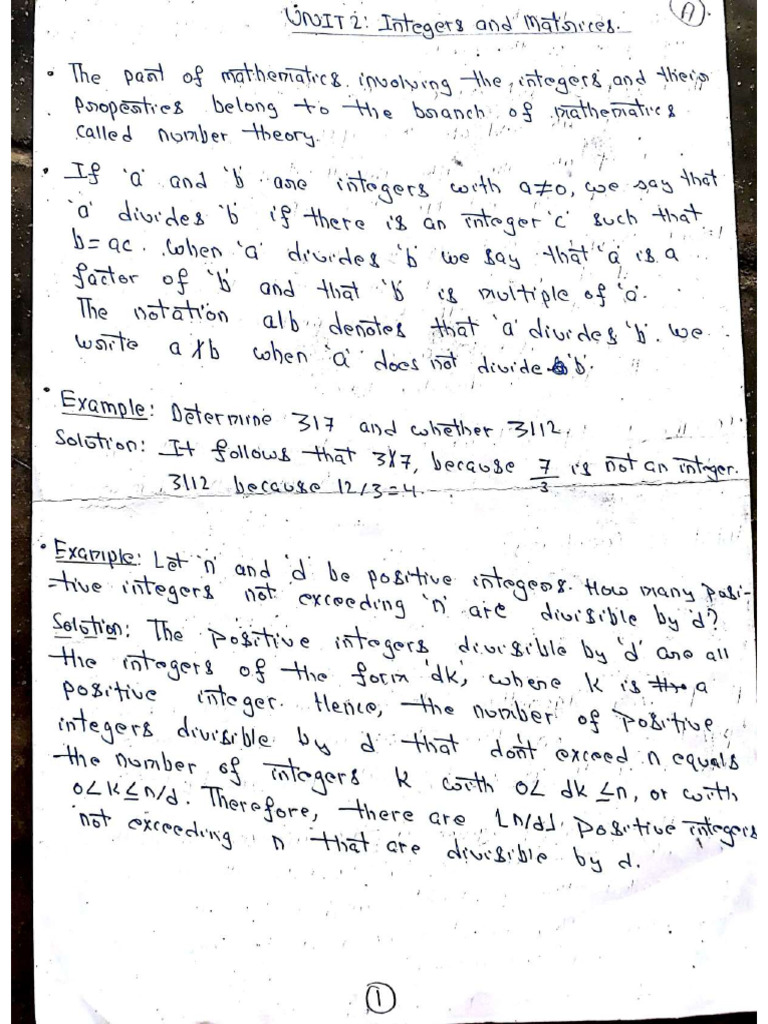 UNIT 2: Integers and Matrices.
A
• The part of mathematics involving the integers and their
properties belong to the branch of mathematics
called number theory.
• If 'a' and 'b' are integers with a≠0, we say that
'a' divides 'b' if there is an integer 'c' such that
b=ac. When 'a' divides 'b' we say that 'a' is a
factor of 'b' and that 'b' is multiple of 'a'.
The notation a|b denotes that 'a' divides 'b'. we
write a∤b when 'a' does not divide 'b'.
• Example: Determine 3|7 and whether 3|12.
Solution: It follows that 3∤7, because 7/3 is not an integer.
3|12 because 12/3=4.
• Example: Let 'n' and 'd' be positive integers. How many posi-
-tive integers not exceeding 'n' are divisible by 'd'?
Solution: The positive integers divisible by 'd' are all
the integers of the form 'dk', where k is a
positive integer. Hence, the number of positive
integers divisible by d that dont exceed n equals
the number of integers k with 0< dk ≤n, or with
0<k≤n/d. Therefore, there are ⌊n/d⌋ positive integers
not exceeding n that are divisible by d.
1